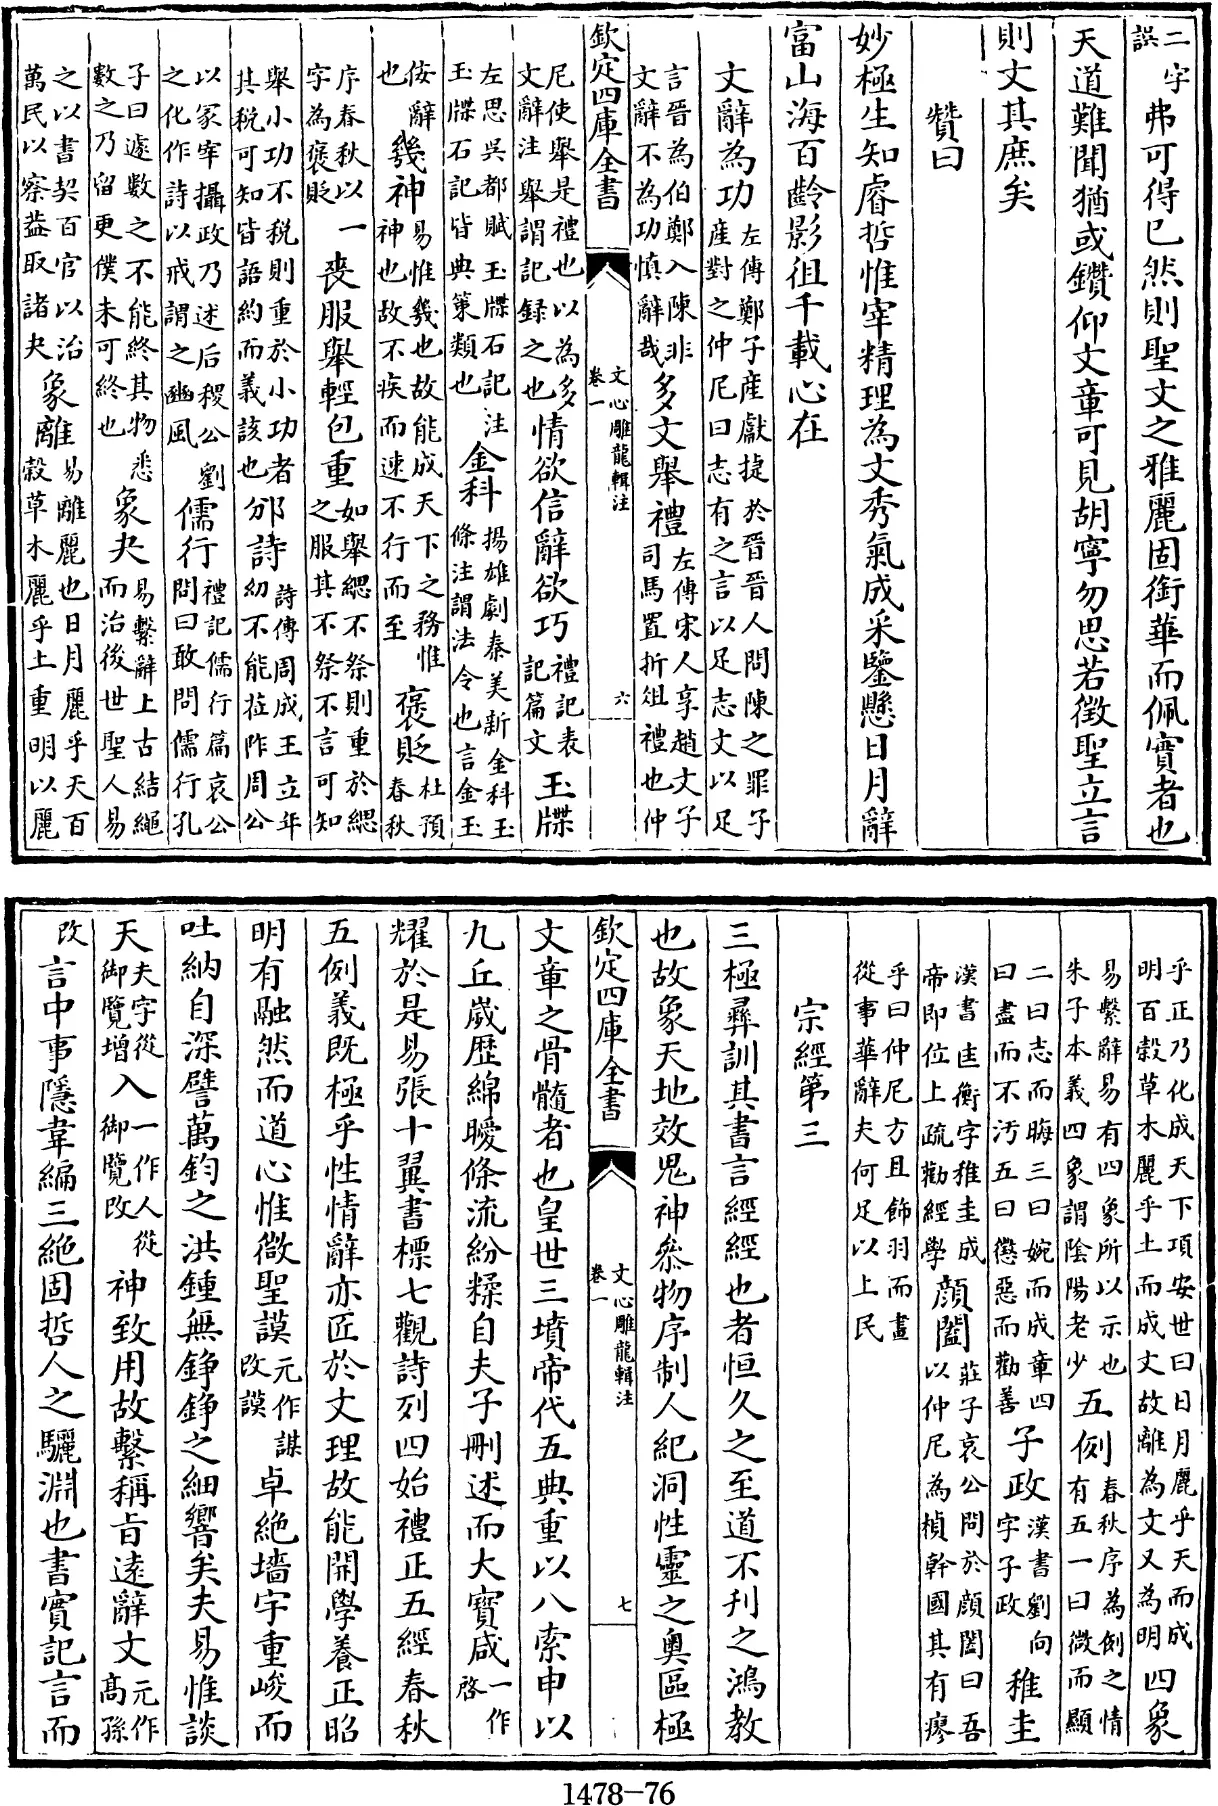 二字誤弗可得已然則聖文之雅麗固銜華而佩實者也
天道難聞猶或鑽仰文章可見胡寧勿思若徵聖立言
則文其庶矣
贊曰
妙極生知睿哲惟宰精理為文秀氣成采鑒懸日月辭
富山海百齡影徂千載心在
文辭為功左傳鄭子產獻捷於晉晉人問陳之罪子產對之仲尼曰志有之言以足志文以足
言晉為伯鄭入陳非文辭不為功慎辭哉多文舉禮左傳宋人享趙文子司馬置折俎禮也仲
欽定四庫全書 文心雕龍輯注 卷一 六
尼使舉是禮也以為多文辭注舉謂記録之也情欲信辭欲巧禮記表記篇文玉牒
左思吳都賦玉牒石記注玉牒石記皆典策類也金科揚雄劇秦美新金科玉條注謂法令也言金玉
佞辭也幾神易惟幾也故能成天下之務惟神也故不疾而速不行而至褒貶杜預春秋
序春秋以一字為褒貶喪服舉輕包重如舉緦不祭則重於緦之服其不祭不言可知
舉小功不税則重於小功者其税可知皆語約而義該也邠詩詩傳周成王立年幼不能蒞阼周公
以冢宰攝政乃述后稷公劉之化作詩以戒謂之豳風儒行禮記儒行篇哀公問曰敢問儒行孔
子曰遽數之不能終其物悉數之乃留更僕未可終也象夬易繫辭上古結繩而治後世聖人易
之以書契百官以治萬民以察蓋取諸夬象離易離麗也日月麗乎天百穀草木麗乎土重明以麗
乎正乃化成天下項安世曰日月麗乎天而成明百穀草木麗乎土而成文故離為文又為明四象
易繫辭易有四象所以示也朱子本義四象謂陰陽老少五例春秋序為例之情有五一曰微而顯
二曰志而晦三曰婉而成章四曰盡而不汚五曰懲惡而勸善子政漢書劉向字子政稚圭
漢書匡衡字稚圭成帝即位上疏勸經學顔闔莊子哀公問於顔闔曰吾以仲尼為楨幹國其有瘳
乎曰仲尼方且飾羽而畫從事華辭夫何足以上民
宗經第三
三極彞訓其書言經經也者恒久之至道不刊之鴻教
也故象天地效鬼神叅物序制人紀洞性靈之奥區極
欽定四庫全書 文心雕龍輯注 卷一 七
文章之骨髓者也皇世三墳帝代五典重以八索申以
九丘嵗歴綿曖條流紛糅自夫子刪述而大寶咸一作啓
耀於是易張十翼書標七觀詩列四始禮正五經春秋
五例義既極乎性情辭亦匠於文理故能開學養正昭
明有融然而道心惟微聖謨元作謀改謨卓絶墻宇重峻而
吐納自深譬萬鈞之洪鍾無錚錚之細響矣夫易惟談
天夫字從御覽增入一作人從御覽改神致用故繫稱旨遠辭文元作高孫
改言中事隱韋編三絶固哲人之驪淵也書實記言而
1478-76